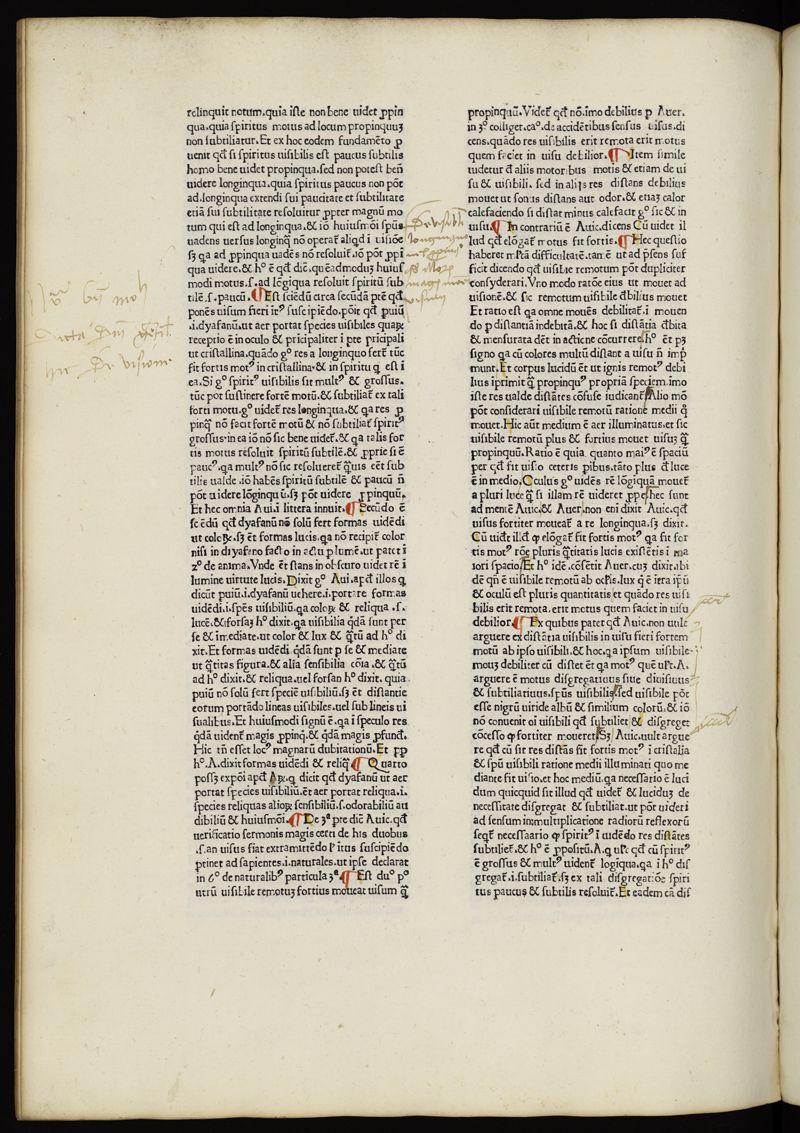 relinquit notum.quia iste non bene uidet ꝓpin
qua.quia spiritus motus ad locum propinquuꝫ
non subtiliatur.Et ex hoc eodem fundamēto ꝓ
uenit qđ si spiritus uisibilis est paucus subtilis
homo bene uidet propinqua.sed non potest beñ
uidere longinqua.quia spiritus paucus non pōt
ad.longinqua extendi sui paucitate et subtilitate
etiā sui subtilitate resoluitur ꝓpter magnū mo
tum qui est ad longinqua.& iō huiusmōi spūs
uadens uersus longinq̄ nō operat̄ aliqđ i uisiōe
sꝫ qa ad ꝓpinqua uadēs nō resoluit̄.iō pōt ꝓpi
qua uidere.& h° ē qđ dic̄.queadmoduꝫ huius
modi motus.s.ad lōgiqua resoluit spiritū sub
tilē.s.paucū.¶Est sciēdū circa secūdā ptē qđ
ponēs uisum fieri it⁹ suscipiēdo.pōit qđ puiū
.i.dyafanū.ut aer portat species uisibiles quaꝝ
receptio ē in oculo & pricipaliter i pte pricipali
ut cristallina.quādo g° res a longinquo fert̄ tūc
fit fortis mot⁹ in cristallina.& in spiritu q̨ est i
ea.Si g° spirit⁹ uisibilis sit mult⁹ & grossus.
tūc pot sustinere fortē motū.& subtiliat̄ ex tali
forti motu.g° uidet̄ res longinqua.& qa res ꝓ
pinq̄ nō facit fortē motū & nō subtiliat̄ spirit⁹
grossus.in ea iō nō sic bene uidet̄.& qa talis for
tis motus resoluit spiritū subtilē.& ꝓprie si ē
pauc⁹.qa mult⁹ nō sic resolueret̄ q̄uis eēt sub
tilis ualde.iō habēs spiritū subtilē & paucū ñ
pōt uidere lōginquū.sꝫ pōt uidere ꝓpinquū.
Et hec omnia Aui.i littera innuit.¶Secūdo ē
scēdū qđ dyafanū nō solū fert formas uidēdi
ut coleꝝ.sꝫ ēt formas lucis.qa nō recipit̄ color
nisi in dyafeno facto in actu p lumē.ut patet i
2° de anima.Vnde ēt stans in obscuro uidet rē i
lumine uirtute lucis.Dixit g° Aui.apđ illos q̨
dicūt puiū.i.dyafanū uehere.i.portare formas
uidēdi.i.spēs uisibiliū.qa coleꝝ & reliqua .s.
lucē.& forsaꝫ h° dixit.qa uisibilia qđā sunt per
se & imediate.ut color & lux & q̄tū ad h° di
xit.Et formas uidēdi.qđā sunt p se & mediate
ut q̄titas figura.& alia sensibilia cōia.& q̄tū
ad h° dixit.& reliqua.uel forsan h° dixit.quia
puiū nō solū fert speciē uisibiliū.sꝫ ēt distantie
eorum portādo lineas uisibiles.uel sub lineis ui
sualibus.Et huiusmodi signū ē.qa i speculo res
qđā uident̄ magis ꝓpinq̄.& qđā magis pfund̄.
Hic tñ esset loc⁹ magnarū dubitationū.Et ꝓp
h°.A.dixit formas uidēdi & reliq̄ ¶Quarto
possꝫ expōi apđ Aꝝ.q̨ dicit qđ dyafanū ut aer
portat species uisibiliū.ēt aer portat reliqua.i.
species reliquas alioꝝ sensibiliū.s.odorabiliū au
dibiliū & huiusmōi.¶De 3ª pte dic̄ Auic.qđ
uerificatio sermonis magis certi de his duobus
.s.an uisus fiat extramittēdo l' itus suscipiēdo
ptinet ad sapientes.i.naturales.ut ipse declarat
in 6° de naturalib⁹ particula 3ª.¶Est du° p°
utrū uisibile remotuꝫ fortius moueat uisum q̄
propinquū.Videt̄ qđ nō.imo debilius p Auer.
in 3° colliget.ca°.de accidētibus sensus uisus.di
cens.quādo res uisibilis erit remota erit motus
quem faciet in uisu debilior.¶Item simile
uidetur đ aliis motoribus motis & etiam de ui
su & uisibili. sed in aliis res distans debilius
mouet ut sonus distans aut odor.& etiaꝫ calor
calefaciendo si distat minus calefacit g° sic & in
uisu.¶In contrariū ē Auic.dicens Cū uidet il
lud qđ elōgat̄ motus fit fortis.¶Hec questio
haberet mltā difficultatē.tamē ut ad pſens suf
ficit dicendo qđ uisibile remotum pōt dupliciter
consyderari.Vno modo ratōe eius ut mouet ad
uisionē.& sic remotum uisibile đbilius mouet
Et ratio est qa omne mouēs debilitat̄.i mouen
do p distantiā indebitā.& hoc si distātia đbita
& mensurata đet in actiōe cōcurrere.h° ēt pꝫ
signo qa cū colores multū distant a uisu ñ imp̄
munt.Et corpus lucidū ēt ut ignis remot⁹ debi
lius iprimit q̄ propinqu⁹ propriā speciem.imo
iste res ualde distātes cōfuse iudicant̄.Alio mō
pōt considerari uisibile remotū ratione medii q̨
mouet.Hic aūt medium ē aer illuminatus.et sic
uisibile remotū plus & fortius mouet uisuꝫ q̄
propinquū.Ratio ē quia quanto mai⁹ ē spaciū
per qđ fit uisio ceteris pibus.tāto plus đ luce
ē in medio.Oculus g° uidēs rē lōgiquā mouet̄
a pluri luce q̄ si illam rē uideret ꝓpe.hec sunt
ad mentē Auic.& Auer.non eni dixit Auic.qđ
uisus fortiter moueat̄ a re longinqua.sꝫ dixit.
Cū uidet illđ q̨ elōgat̄ fit fortis mot⁹ qa fit for
tis mot⁹ rōe pluris q̄titatis lucis existētis i ma
iori spacio.Et h° idē .cōsētit Auer.cuꝫ dixit.ibi
dē qñ ē uisibile remotū ab oclis.lux q̨ ē itra ip̄ū
& oculū est pluris quantitatis et quādo res uisi
bilis erit remota.erit motus quem faciet in uisu
debilior.¶Ex quibus patet qđ Auic.non uult
arguere ex distātia uisibilis in uisu fieri fortem
motū ab ipso uisibili.& hoc.qa ipsum uisibile
mouꝫ debiliter cū distet ēt qa mot⁹ quē ult̄.A.
arguere ē motus disgregatiuus siue diuisiuus
& subtiliatiuus.spūs uisibilis.sed uisibile pōt
esse nigrū uiride albū & similium colorū.& iō
nō conuenit oi uisibili qđ subtiliet & disgreget
cōcesso q̨ fortiter moueret.Sꝫ Auic.uult argue
re qđ cū sit res distās fit fortis mot⁹ i cristalia
& spū uisibili ratione medii illuminati quo me
diante fit uisio.et hoc mediū.qa necessario ē luci
dum quicquid sit illud qđ uidet̄ & luciduꝫ de
necessitate disgregat & subtiliat.ut pōt uideri
ad sensum in multiplicatione radiorū reflexorū
seq̄t̄ necessaario q̨ spirit⁹ ī uidēdo res distātes
subtiliet̄.& h° ē ꝓpositū.A.q̨ ult̄ qđ cū spirit⁹
ē grossus & mult⁹ uident̄ logiqua.qa i h° dis
gregat̄.i.subtiliat̄.sꝫ ex tali disgregatiōe spiri
tus paucus & subtilis resoluit̄.Et eadem cā dis